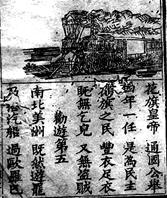 花旗皇帝 通國公舉
四年一任 是為民主
花旗之民 豐衣足衣
既無乞兒 又無盜賊
勸遊第五
南北美洲 既然遊罷
乃搭汽船 過歐羅巴